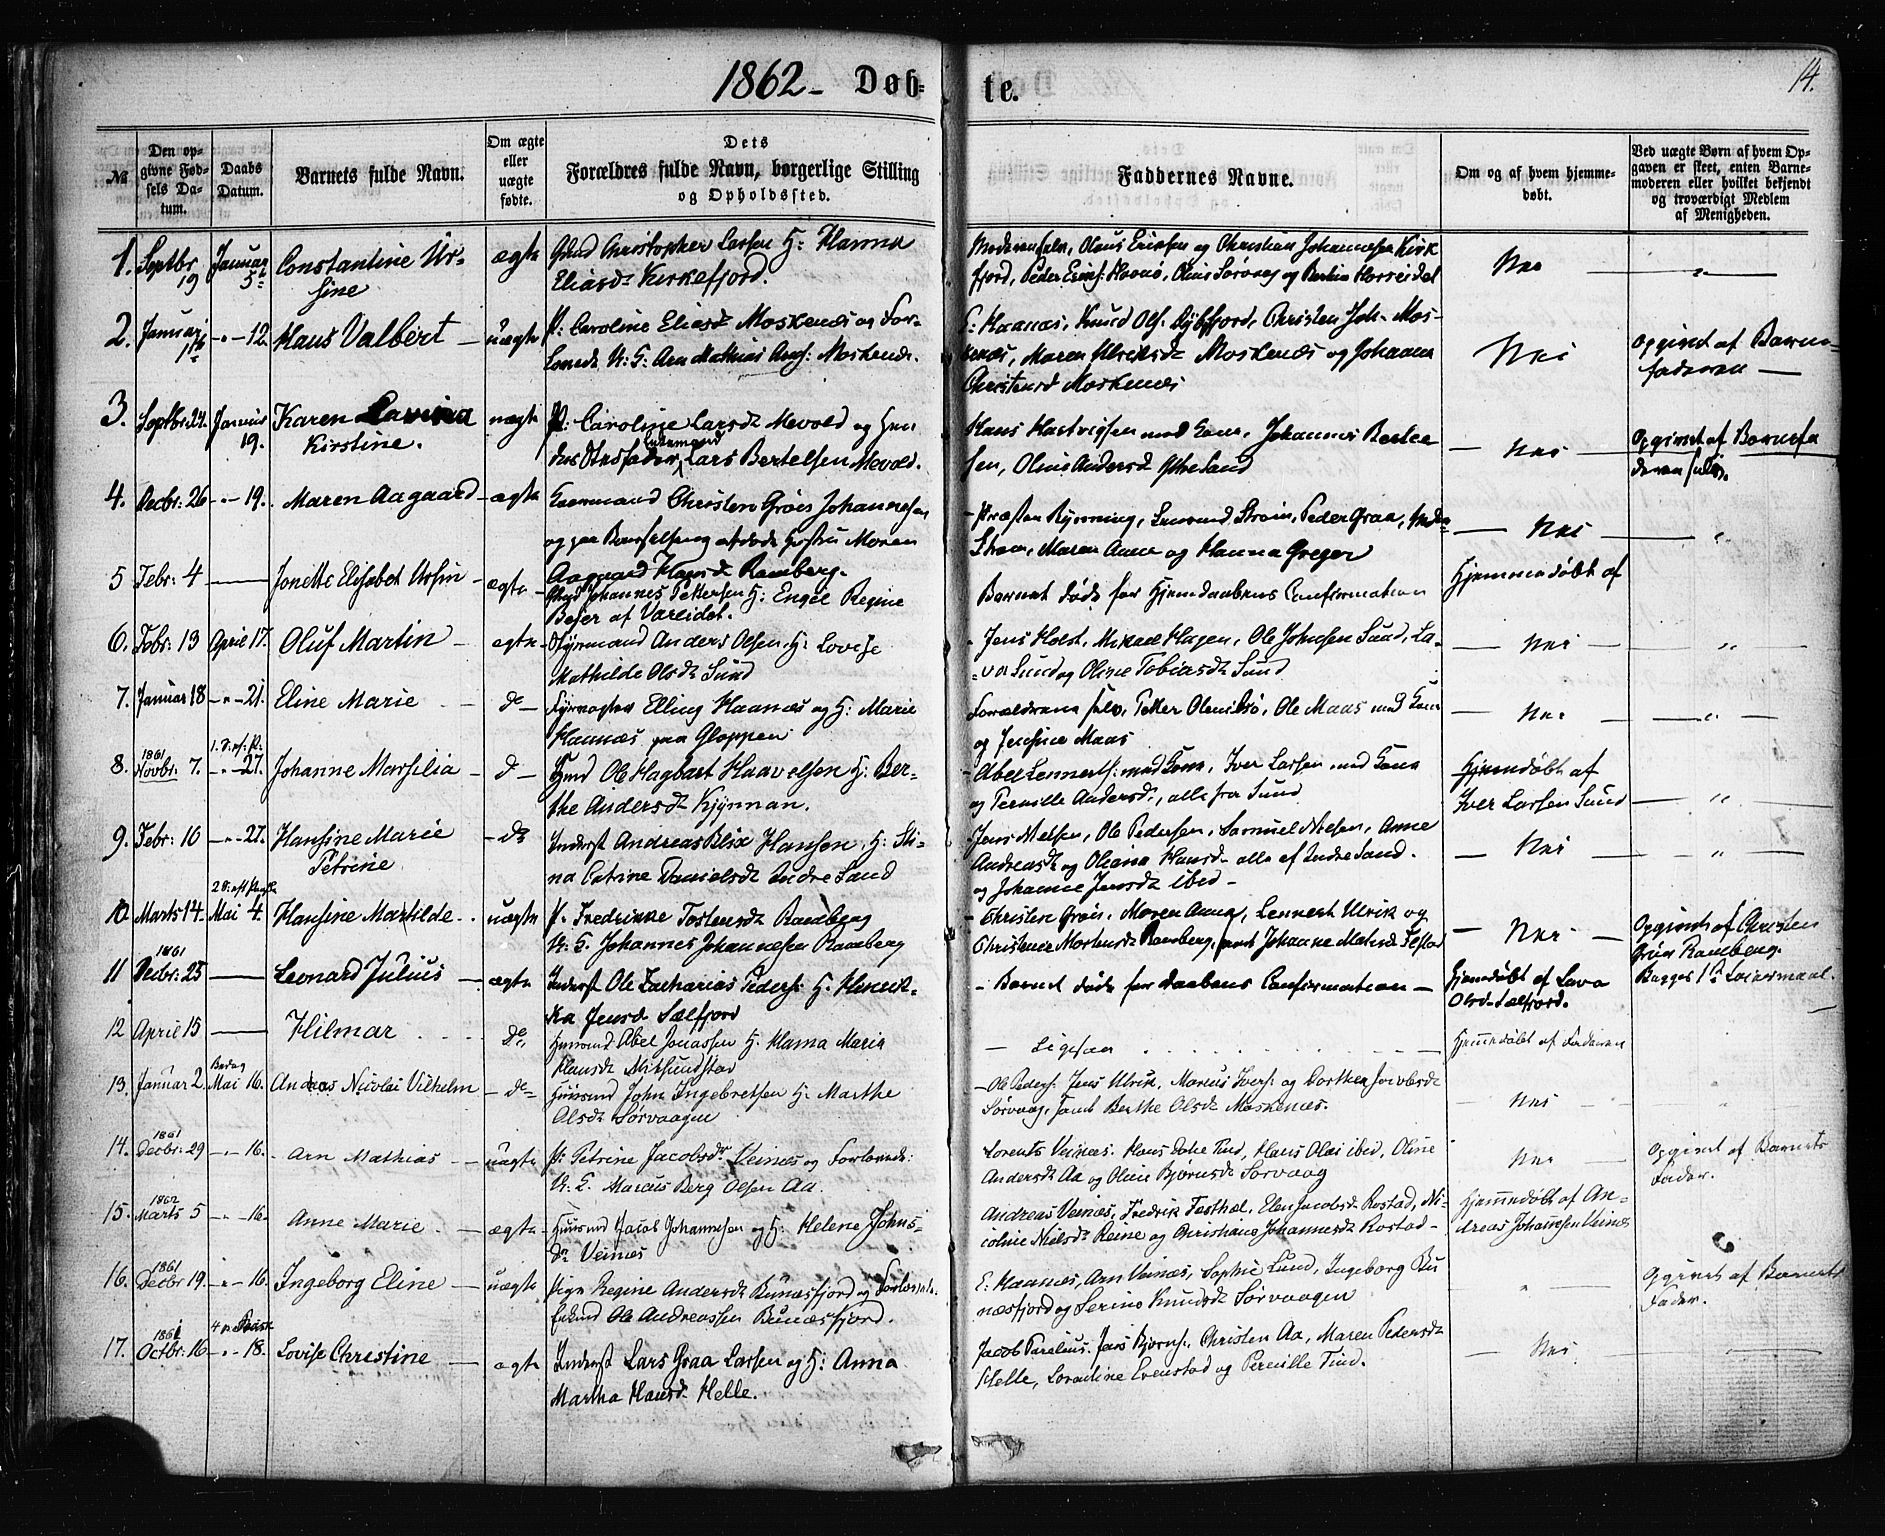 1862 - Døb= te. 14.
No
Den op-
givne Fød-
sels Da-
tum.
Daabs
Datum.
Barnets fulde Navn.
Om ægte
eller
uægte
fødte.
Dets
Forældres fulde Navn, borgerlige Stilling
og Opholdssted.
Faddernes Navne.
Om og af hvem hjemme-
døbt.
Ved uægte Børn af hvem Op-
gaven er skeet, enten Barne-
moderen eller hvilket bekjendt
og troværdigt Medlem
af Menigheden.
1. Septbr 19 Januar 5te Constantine Ur-
sine
ægte
Christopher Larsen H: Hanna
Eliasd. Kirkefjord.
Moderen selv, Olaus Eriksen og Christian Johannesen Kirk
fjord, Peder Eriks: Olina Sørvaag og
Nei "
2. Januar 1te - " - 12. Hans Valbert - uægte
P: Caroline Eliasd. Moskenæs og For-
lovede U: K: Arn Mathias Arnts: Moskenæs.
E: Haanæs, Knud Ols. Dybfjord, Christen Joh. Mos-
kenæs, Maren Ulriksd. Moskenæs og Johanna
Christensd. Moskenæs
Nei
Opgivet af Barne-
faderen -
3. Septbr: 24. Januar 19. Karen Lavina
Kirstine.
uægte
P: Caroline Larsd. Mevold og
Lars Bertelsen Mevold.
Hans Hartvigsen med Kone, Johannes Bertel
sen, Olina Andersd. Ytresand
- Nei -
Opgivet af Barnefa
deren selv.
4. Decbr: 26 - " - 19. Maren Aagaard - ægte
Eiermand Christen Grøn Johannesen
og paa Barselseng afdøde Hustru Maren
Aagaard Hansd. Ramberg.
- Præsten Rynning, Lensmand Strøm, Peder Graa,
Strøm, Maren Anna og Hanna Greger
- Nei - "
5 Febr: 4 - Jonette Elisabet Ursin - ægte -
Johannes Pettersen H: Engel Regine
Bejer af Vareidet.
Barnet døde før Hjemdaabens Confirmation
Hjemmedøbt af
6. Febr: 13 April 17. Oluf Martin - ægte -
Styrmand Anders Olsen H: Lovise
Mathilde Olsd. Sund
- Jens Holst, Mikael Hagen, Ole Johnsen Sund, La-
- va Sund og Oline Tobiasd. Sund
- Nei - "
7. Januar 18 - " - 21. Eline Marie - do -
Fyrvogter Elling Haanæs og H: Marie
Haanæs paa Gloppen
Forældrene selv, Petter Olenilsø, Ole Maas med Kone
og Josefine Maas
- Nei - "
8. 1861 Novbr: 7. 1. S. ef. P: - " - 27. Johanne Marsilia - do -
Huusmd Ole Hagbart Haavelsen H: Ber-
the Andersd. Kjynnan.
- Abel Lennerts: med Kone, Iver Larsen med Kone
og Pernille Andersd., alle fra Sund
Hjemdøbt af
Iver Larsen Sund - " -
9. Febr: 10 - " - 27. Hansine Marie
Petrine
- do
Inderst Andreas Blix Hansen H: Sti-
na Catrine Danielsd. Indre Sand
Jens Nilsen, Ole Pedersen, Samuel Nilsen, Anne
Andreasd. og Oliana Hansd. alle af Indre Sand.
og Johanne Jensd. ibid -
- Nei - "
10. Marts 14. 2 S: eft Paaske Mai 4. Hansine Martilde - uægte
P. Fredrikke Tostensd. Ramberg
U: K. Johannes Johannesen Ramberg
- Christen Grøn, Maren Anna, Lennert Ulrik og
Christense Mortensd. Ramberg, samt Johanne Matisd. Flstad
- Nei -
Opgivet af Christen
Grøn Ramberg.
Begges 1ste Leiermaal.
11 1861 Decbr: 25 - Leonard Julius - ægte
Inderst Ole Zacharias Peders: H: Henrik-
ka Jensd. Selfjord
- Barnet døde før Daabens Confirmation -
Hjemdøbt af Lava
Olsd. Selfjord.
12 April 15 - Hilmar do
Huusmd Abel Jonassen H: Hanna Maria
Hansd. Mitsundstad
- Ligesaa
Hjemmedøbt af Faderen
13. Januar 2. Bededag Mai 16. Andreas Nicolai Vilhelm - do -
Huusmd John Ingebretsen H: Marthe
Olsd. Sørvaagen
- Ole Peders: Jens Ulrik, Marius Ivers: og Dorthea Jacobsd.
Sørvaag, samt Berthe Olsd. Moskenæs.
- Nei - "
14. 1861 Decbr: 29 - " - 16. Arn Mathias - uægte
P: Petrine Jacobsdr Veinæs og Forlovede:
U: K. Marcus Berg Olsen Aa.
Lorents Veinæs, Hans Tind, Hans Olai ibid, Oline
Andersd. Aa og Oline Bjørnsd. Sørvaag
Nei -
Opgivet af Barnets
Fader.
15. 1862 Marts 5 - " - 16. Anne Marie - ægte -
Huusmd Jacob Johannesen og H: Helene Johns-
dr Veinæs
Andreas Veinæs, Fredrik Festhæl, Elen Jacobsd. Rostad, Ni-
coline Nielsd. Reine og Christiane Johannesd. Rostad -
Hjemmedøbt af An-
dreas Johansen Veinæs
16. 1861 Decbr 19. - " - 16. Ingeborg Eline - uægte
Pige Regine Andersd. Bunæsfjord og Forlovede.
Enkmd Ole Andreassen Bunæsfjord.
E. Haanæs, Arn Veinæs, Sophie Lund, Ingeborg Bu
næsfjord og Serine Knudsd. Sørvaagen
"
Opgivet af Barnets
Fader.
17. 1861 Octbr: 16 - " - 18. Lovise Christine - ægte
Inderst Lars Graa Larsen og H: Anna
Martha Hansd. Helle.
Jacob Parelius, Jens Bjørns:, Christen Aa, Maren Pedersd.
Helle, Lovadine Evenstad og Pernille Tind.
- Nei.